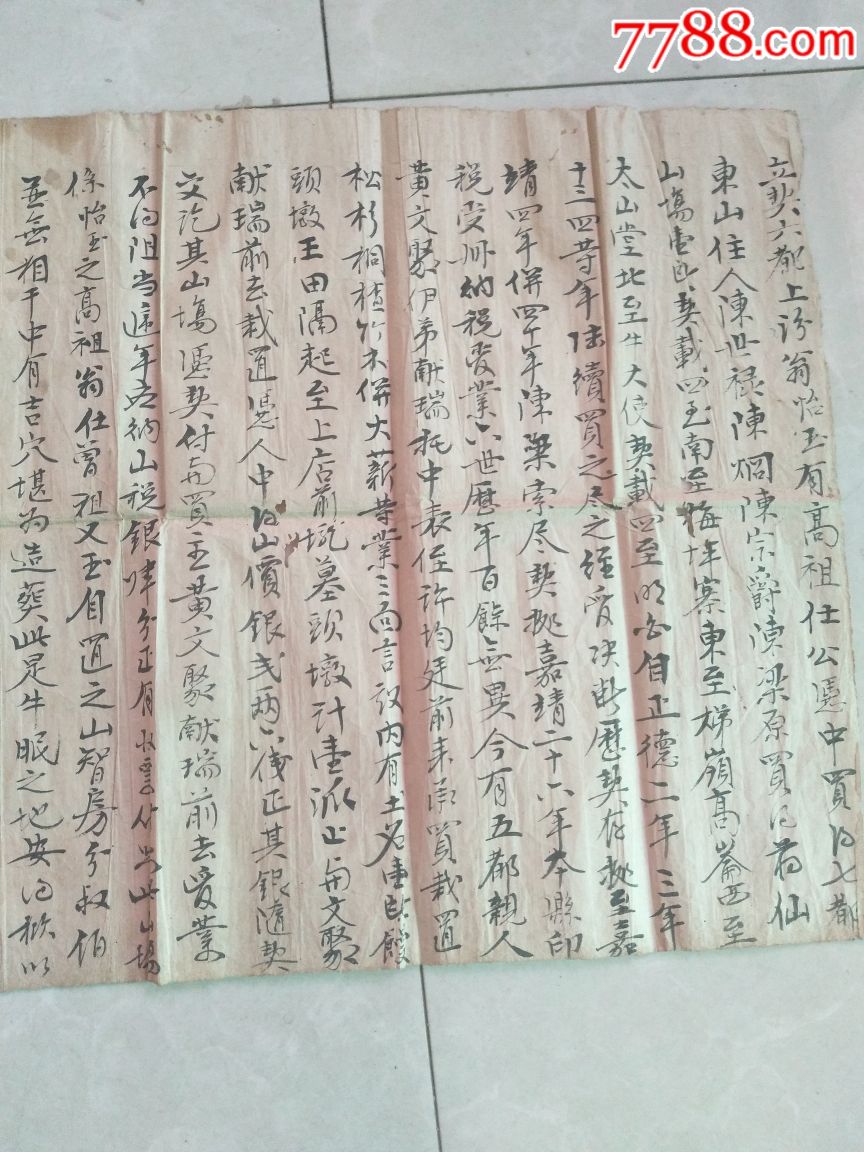 7788.com
立契六都上汾翁怡玉有高祖仕公憑中買得七都
東山住人陳世禄陳烱陳宗爵陳梁原買得蒋仙
山塲壹契載四至南至梅垟寨東至梯嶺高崙西至
太山堂北至牛大使契載四至明白自正德二年三年
十三四等年陆續買之尽之經受决断歷契存挑至嘉
靖四年併四十年陳梁索尽契挑嘉靖二十六年本縣印
税受冊纳税受業六世歷年百餘無異今有五都親人
黄文聚伊弟献瑞托中表侄許均廷前来承買栽置
松杉桐楂竹木併大薪等業三面言议内有土名壹
頭墩王田隔起至上店前墓頭墩计壹派止与文聚
献瑞前去栽置憑人中得山價銀弍两六伐正其銀隨契
交讫其山塲憑契付与買主黄文聚献瑞前去受業
不得阻当遞年立納山税銀分正有收票付此山塲
係怡玉之高祖翁仕曾祖又玉自置之山智房分叔伯
並無相干中有吉穴堪为造葬此是牛眠之地安得以